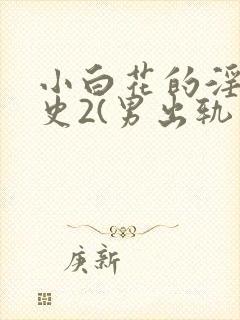 小白花的淫
史2(男出轨
庚新